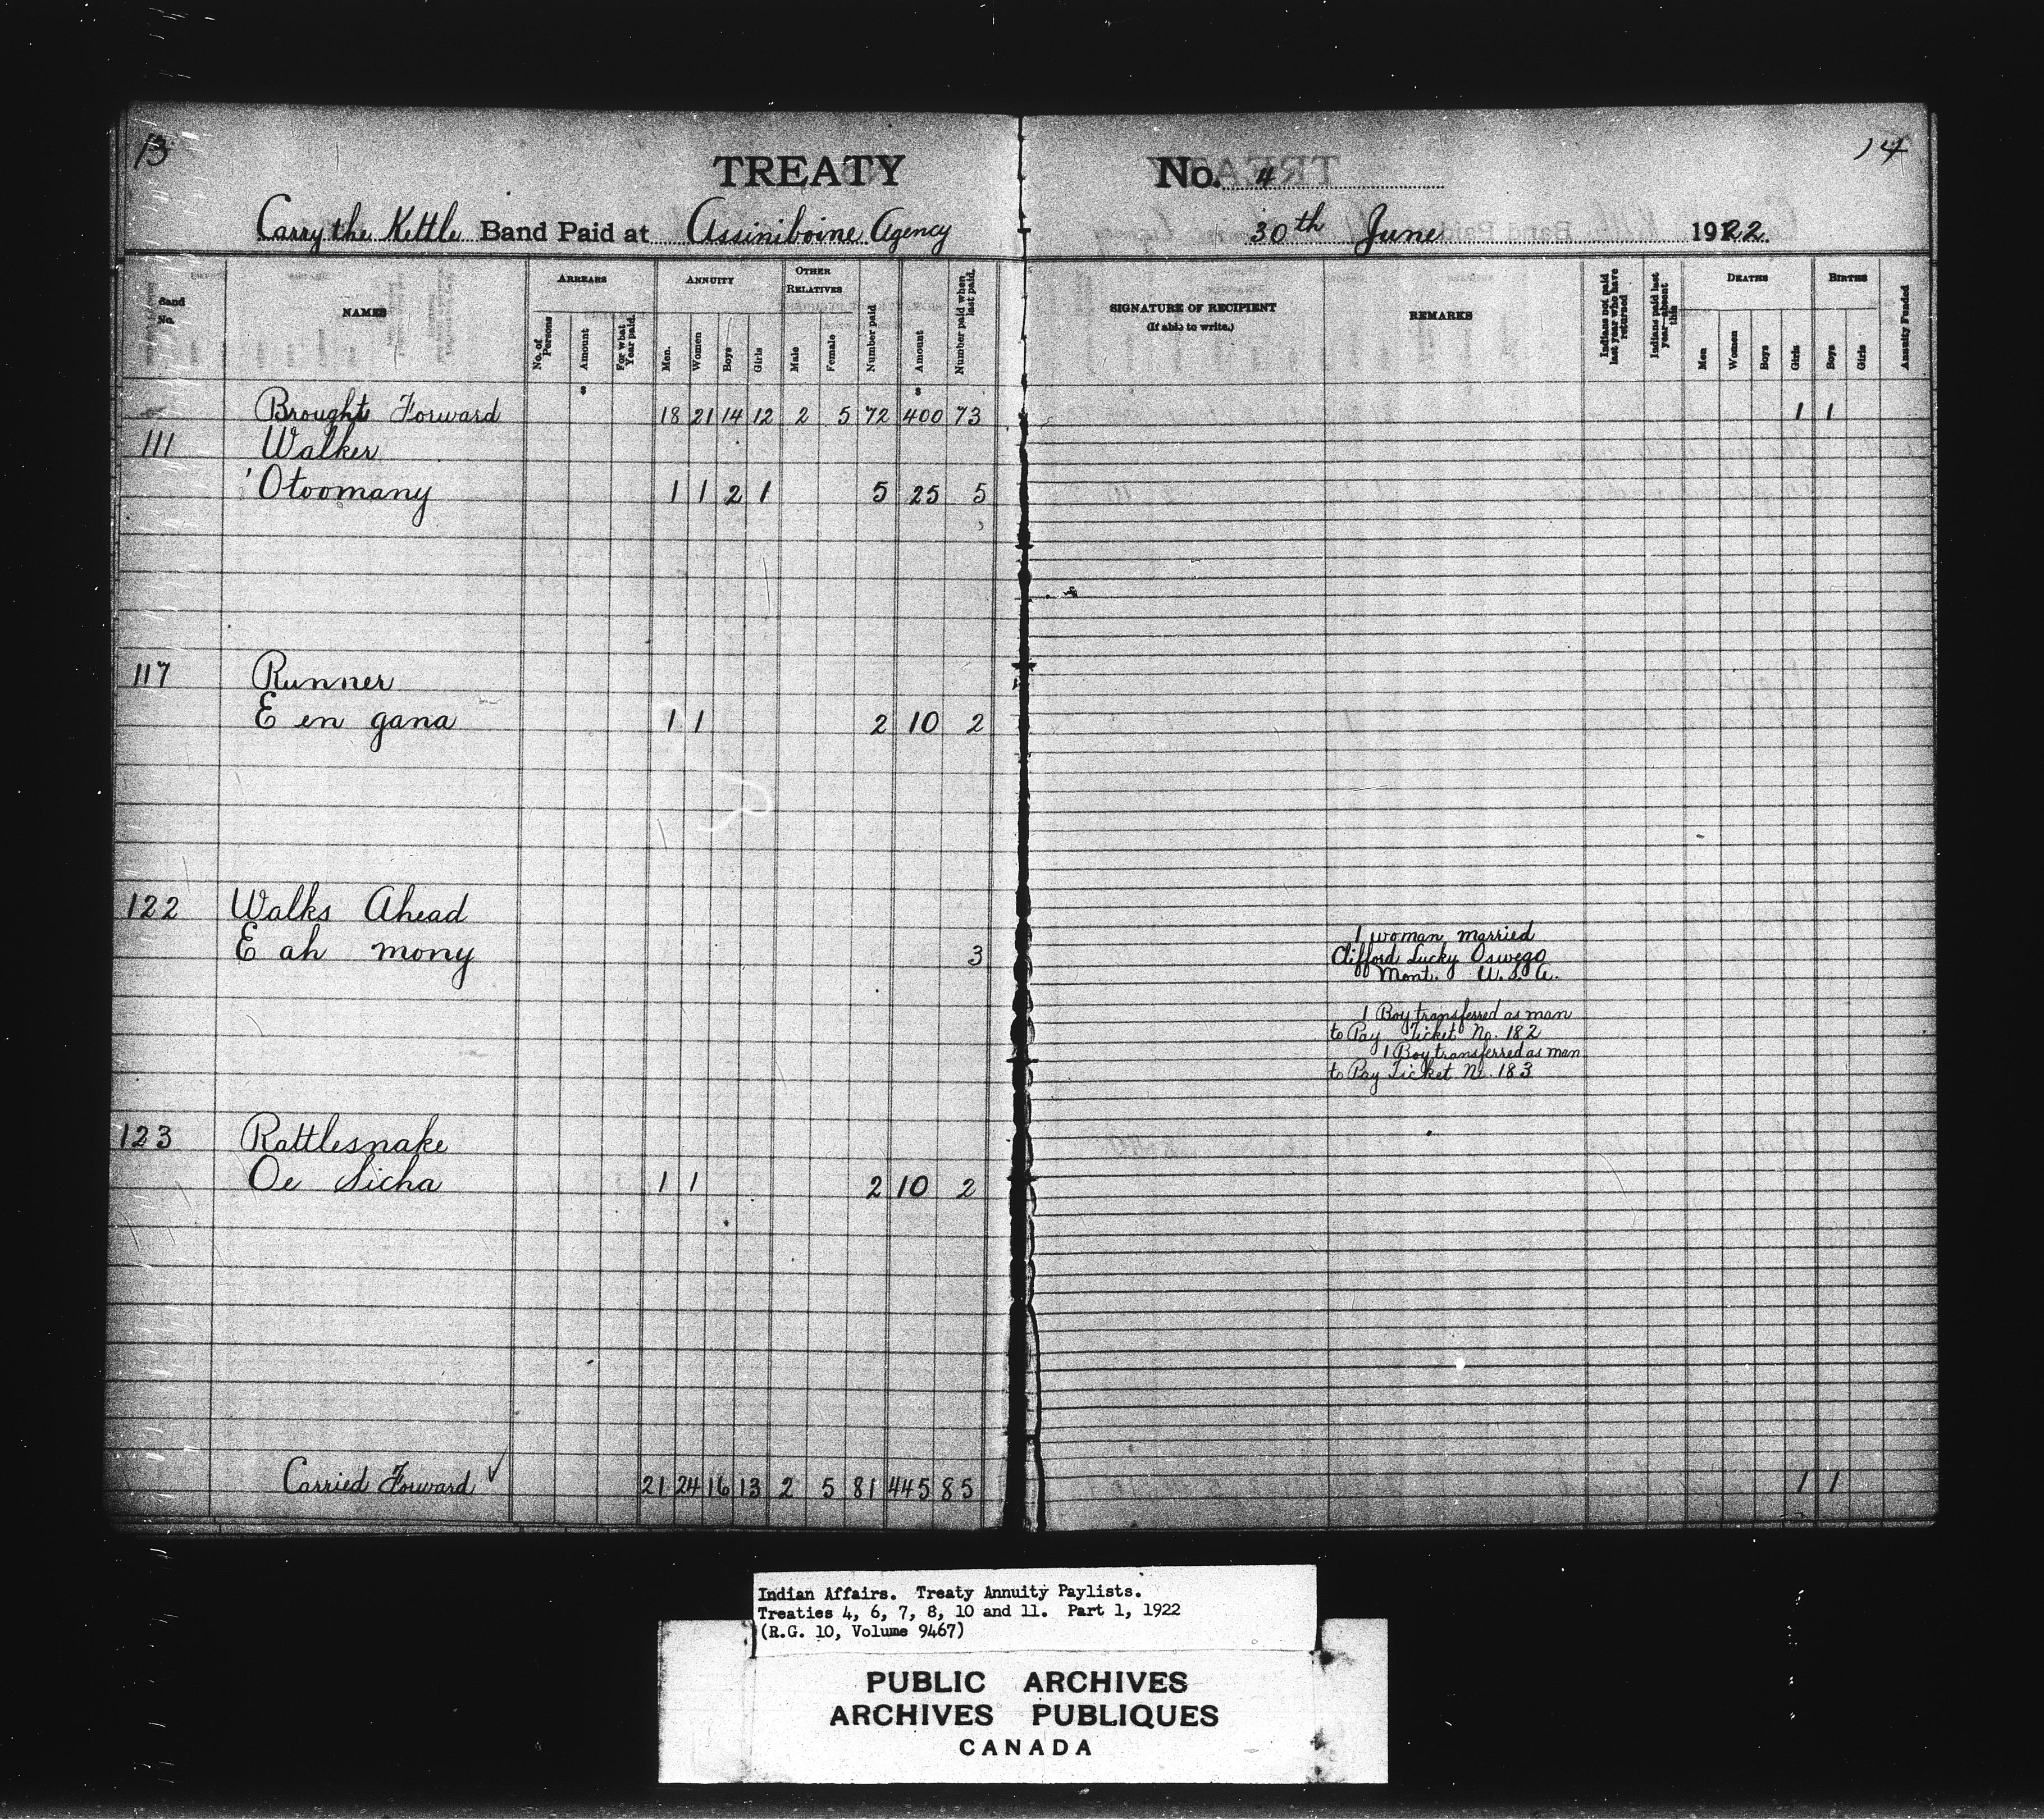 13
TREATY No. 4
14
Carry the Kettle Band Paid at Assiniboine Agency 30th June 1922.
Band No.
NAMES
ARREARS
No. of Persons
Amount
For what Year paid.
ANNUITY
Men.
Women
Boys
Girls
OTHER RELATIVES
Male
Female
Number paid
Amount
Number paid when last paid.
SIGNATURE OF RECIPIENT
(If able to write.)
REMARKS
Indians not paid last year who have returned
Indians paid last year absent this
DEATHS
Men
Women
Boys
Girls
BIRTHS
Boys
Girls
Annuity Funded
$ $
Brought Forward 18 21 14 12 2 5 72 400 73 1 1
111 Walker
Otoomany 1 1 2 1 5 25 5
117 Runner
E en gana 1 1 2 10 2
122 Walks Ahead
E ah mony 3
1 woman married
Clifford Lucky Oswego
Mont. U.S.A.
1 Boy transferred as man
to Pay Ticket No. 182
1 Boy transferred as man
to Pay Ticket No. 183
123 Rattlesnake
Oe Sicha 1 1 2 10 2
Carried Forward ✓ 21 24 16 13 2 5 81 445 85 1 1
Indian Affairs. Treaty Annuity Paylists.
Treaties 4, 6, 7, 8, 10 and 11. Part 1, 1922
(R.G. 10, Volume 9467)
PUBLIC ARCHIVES
ARCHIVES PUBLIQUES
CANADA